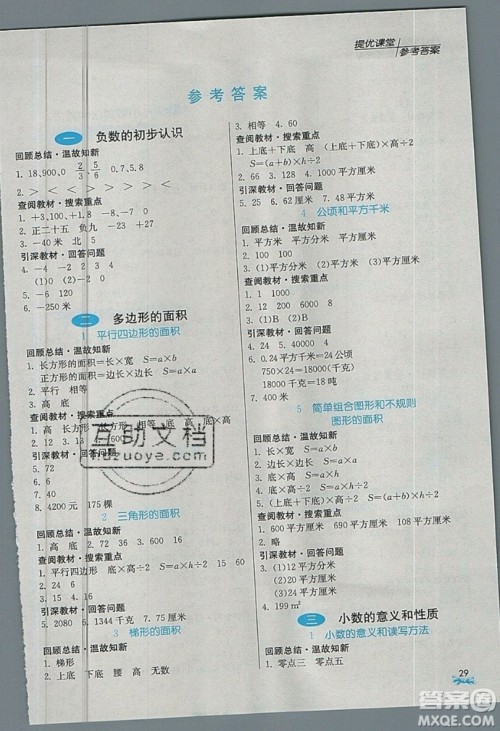 提优课堂
参考答案
参考答案
一 负数的初步认识
回顾总结·温故知新
1. 18、900、0 2/5、5/6 0.7、5.8
2. > < > > < >
查阅教材·搜索重点
1. +3、100、+1.8 -8 -15
2. 正二十五 负九 -23 +12
3. -40米 北 5
引深教材·回答问题
4. -4 -2 2 3 4
(1)0 (2)-2
5. -6 -120
6. -250米
二 多边形的面积
1 平行四边形的面积
回顾总结·温故知新
1. 长方形的面积=长×宽 S=a×b
正方形的面积=边长×边长 S=a×a
2. 平行 相等
查阅教材·搜索重点
1. 高 长方形
2. 12 3. 13
引深教材·回答问题
5. 72
6. 8
7. 50
8. 4200元 175棵
2 三角形的面积
回顾总结·温故知新
1. 高 底 2. 72 3. 36 4. 600 16
查阅教材·搜索重点
1. 平行四边形 底×高÷2 S=a×h÷2
2. 24 3. 6 15 60
4. 15 16
引深教材·回答问题
5. 2080 6. 1344千克 7. 8.75厘米
3 梯形的面积
回顾总结·温故知新
1. 梯形
2. 上底 下底 腰 高 无数
3. 相等 4. 60
查阅教材·搜索重点
1. 上底+下底 高 (上底+下底)×高÷2
S=(a+b)×h÷2
2. 66 3. 128 4. 100平方厘米
引深教材·回答问题
5. 25 6. 62厘米 7. 48平方厘米
4 公顷和平方千米
回顾总结·温故知新
1. 平方米 平方分米 平方厘米
2. 100 100
3. (1)平方分米 (2)平方厘米 (3)平方米
查阅教材·搜索重点
1. 1 1000
2. 12 200 6000 8
3. (1)B (2)B
引深教材·回答问题
4. 24 5. 40000 4
6. 0.24平方千米=24公顷
750×24=18000(千克)
18000千克=18吨
7. 2000米
5 简单组合图形和不规则
图形的面积
回顾总结·温故知新
1. 长×宽 S=a×b
2. 边长×边长 S=a×a
3. 底×高 S=a×h
4. 底×高÷2 S=a×h÷2
5. (上底+下底)×高÷2 S=(a+b)×h÷2
查阅教材·搜索重点
1. 600平方厘米 900平方厘米
2. 暗示
引深教材·回答问题
3. (1)24平方厘米
(2)14平方厘米
4. 199 m²
三 小数的意义和性质
1 小数的意义和读写方法
回顾总结·温故知新
1. 零点三 零点五
29
互助文档
huzuoye.com
答案圈
MXQE.COM